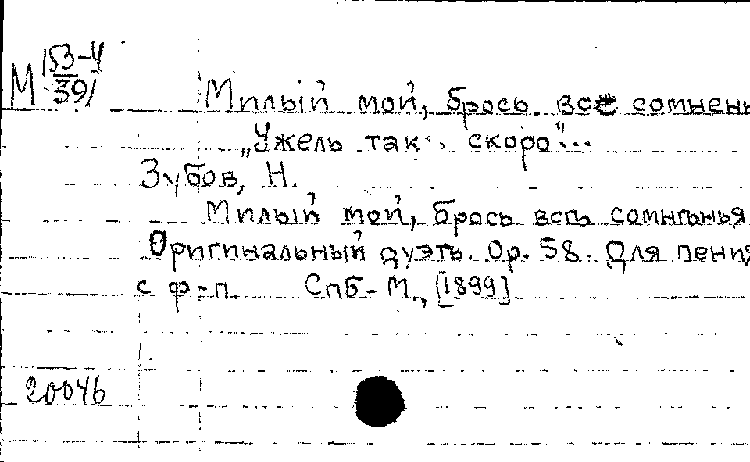 М 153-4/39 Милый мой, брось все сомнень
„Ужель так скоро"...
Зубов, Н.
Милый мой, брось всѣ сомнѣнья
Оригинальный дуэтъ. Op. 58. Для пения
с ф-п. Спб-М., [1899]
20046